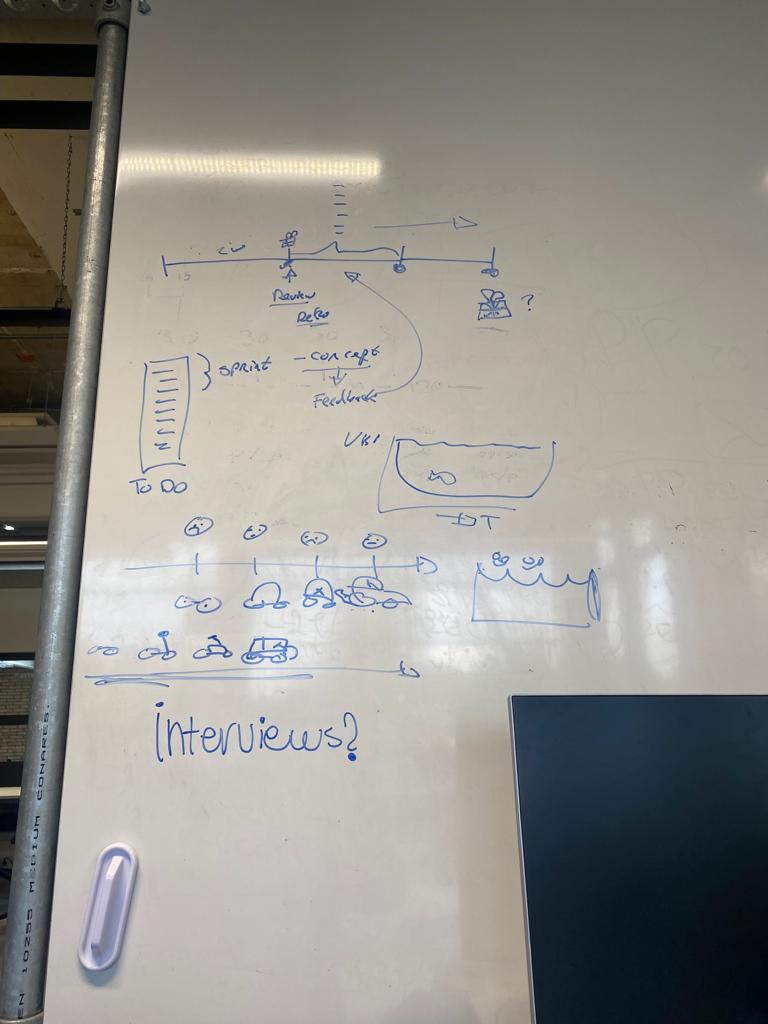 Review
Retro
sprint
- concept
Feedback
To Do
interviews?
EN 10255 MEDIUM CONARES.